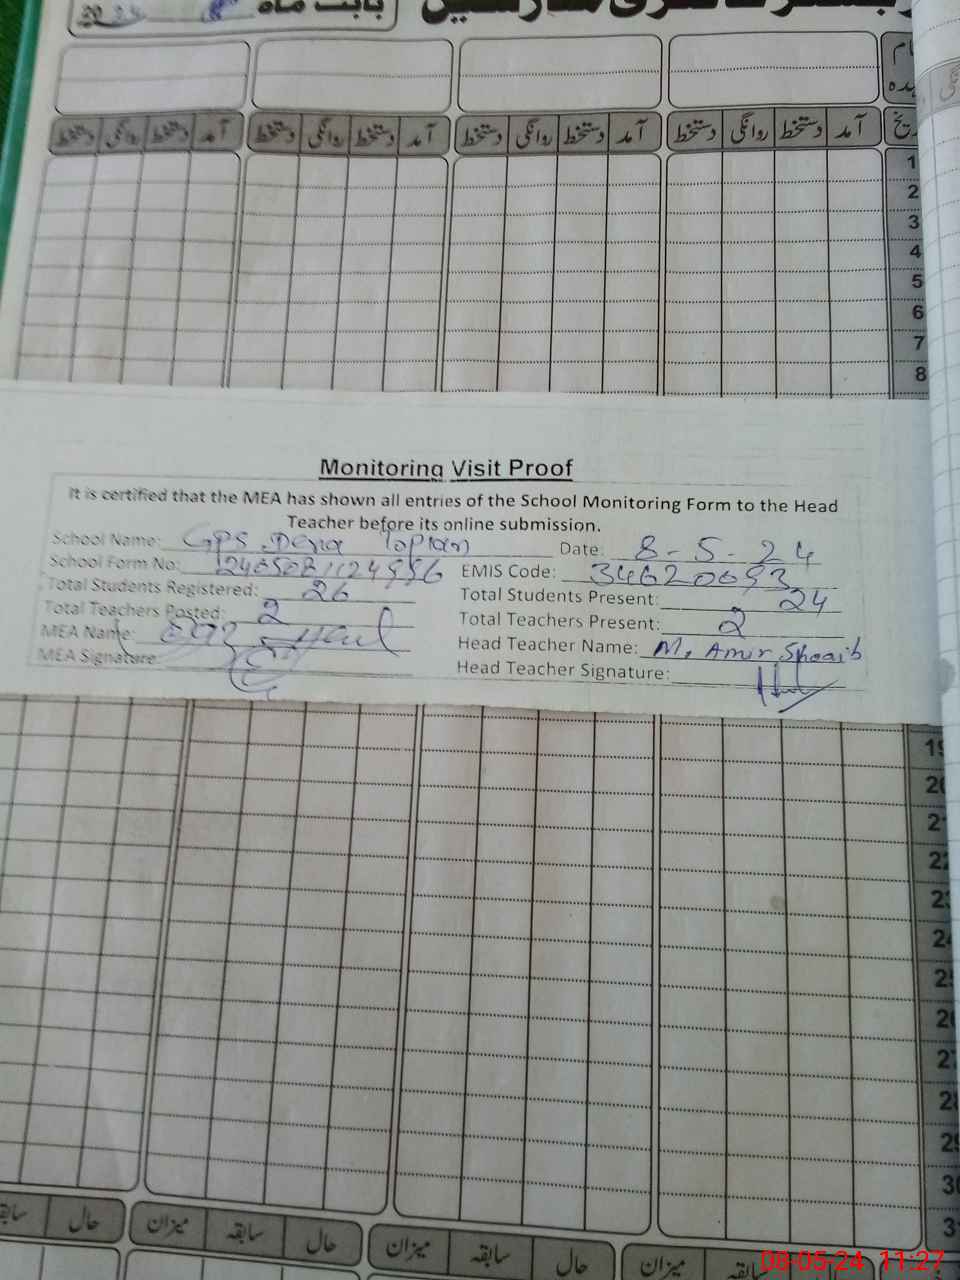 بابت ماہ
2024
آمد دستخط روانگی دستخط آمد دستخط روانگی دستخط آمد دستخط روانگی دستخط آمد دستخط روانگی دستخط
1
2
3
4
5
6
7
8
Monitoring Visit Proof
It is certified that the MEA has shown all entries of the School Monitoring Form to the Head
Teacher before its online submission.
School Name: GPS Dera Date: 8-5-24
School Form No: EMIS Code: 34620693
Total Students Registered: 26 Total Students Present: 24
Total Teachers Posted: 2 Total Teachers Present: 2
MEA Name: Head Teacher Name: M. Amir Shoaib
MEA Signature: Head Teacher Signature:
19
20
21
22
23
24
25
26
27
28
29
30
31
میزان سابقہ حال میزان سابقہ حال میزان سابقہ حال
08-05-24 11:27